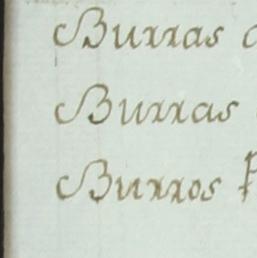 Burras
Burras
Burros